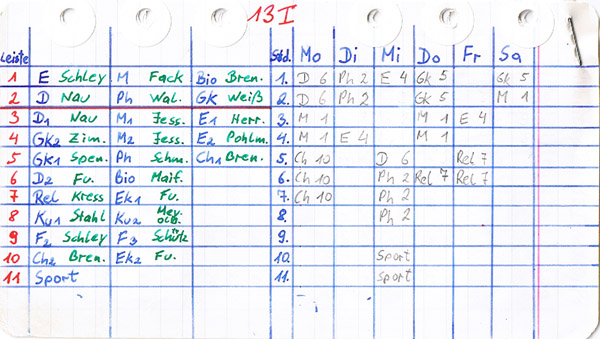 13 I
Leiste Std. Mo Di Mi Do Fr Sa
1 E Schley M Fack Bio Bren. 1. D 6 Ph 2 E 4 Gk 5 Gk 5
2 D Nau Ph Wal. GK Weiß 2. D 6 Ph 2 Gk 5 M 1
3 D1 Nau M1 Jess. E1 Herr. 3. M 1 M 1 E 4
4 GK2 Zim. M2 Jess. E2 Pohlm. 4. M 1 E 4 M 1
5 GK1 Spen. Ph Schm. Ch1 Bren. 5. Ch 10 D 6 Rel 7
6 D2 Fu. Bio Maif. 6. Ch 10 Ph 2 Rel 7 Rel 7
7 Rel Kress Ek1 Fu. 7. Ch 10 Ph 2
8 Ku1 Stahl Ku2 8. Ph 2
9 F2 Schley F3 Schütz 9.
10 Ch2 Bren. Ek2 Fu. 10. Sport
11 Sport 11. Sport